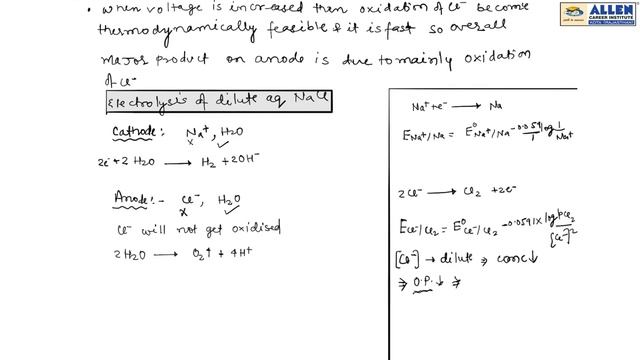 • When voltage is increased then oxidation of Cl⁻ become
thermodynamically feasible & it is fast so overall
major product on anode is due to mainly oxidation
of Cl⁻
Electrolysis of dilute aq NaCl
Cathode: Na⁺, H₂O
2e⁻ + 2 H₂O ⟶ H₂ + 2OH⁻
Anode:- Cl⁻, H₂O
Cl⁻ will not get oxidised
2H₂O ⟶ O₂↑ + 4H⁺
Na⁺ + e⁻ ⟶ Na
E Na⁺/Na = E⁰ Na⁺/Na - 0.0591/1 log 1/Na⁺
2Cl⁻ ⟶ Cl₂ + 2e⁻
E Cl⁻/Cl₂ = E⁰ Cl⁻/Cl₂ - 0.0591 × log pCl₂/[Cl⁻]²
[Cl⁻] → dilute ⇒ conc↓
⇒ O.P.↓ ⇒
ALLEN
CAREER INSTITUTE
KOTA (RAJASTHAN)